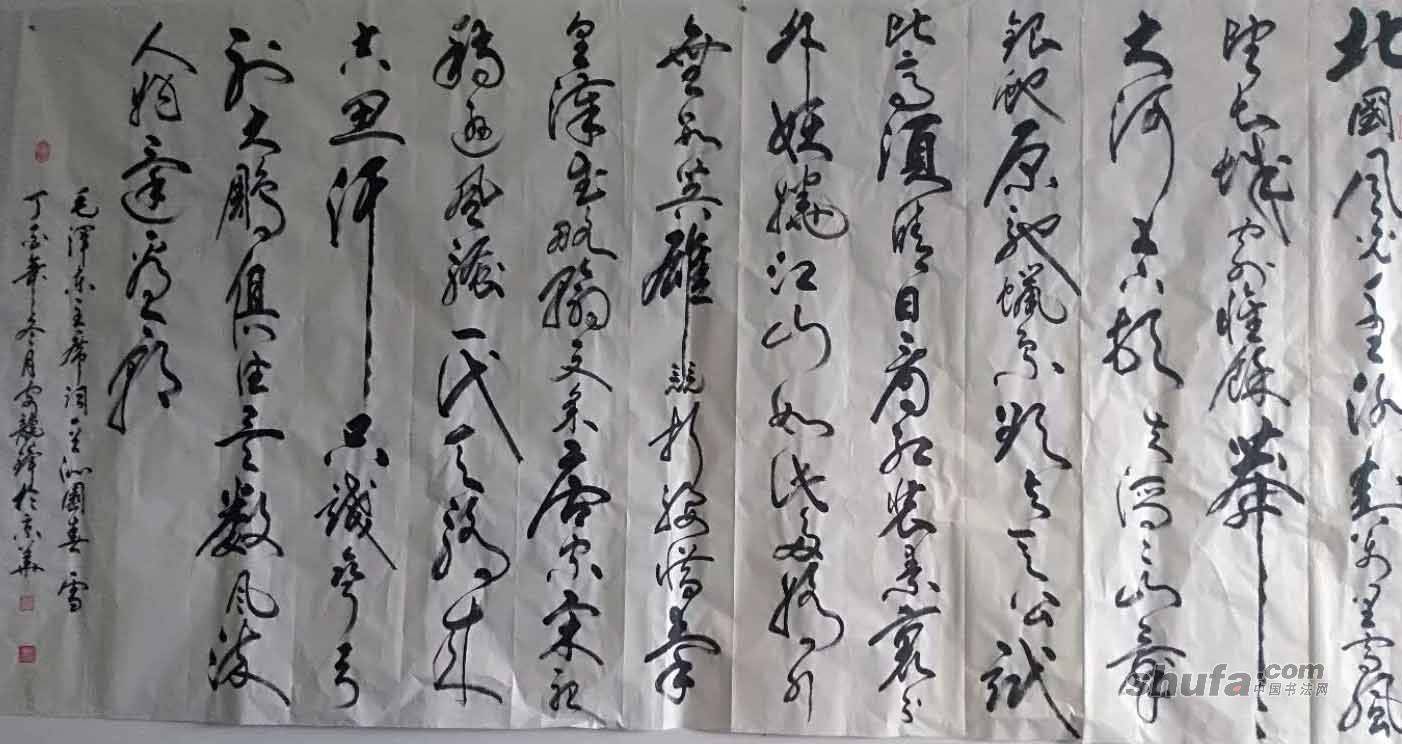 北國風光千里冰封萬里雪飄
望長城内外惟餘莽
大河上下頓失滔滔山舞
銀蛇原馳蠟象欲与天公試
比高須晴日看紅裝素裹分
外妖嬈江山如此多嬌引
無數英雄競折腰惜秦
皇漢武略輸文采唐宗宋祖
稍遜風騷一代天驕成
吉思汗只識彎弓
射大鵰俱往矣數風流
人物還看今朝
毛澤東主席詞一首沁園春雪
丁酉年冬月於京華
shufa.com
中国书法网